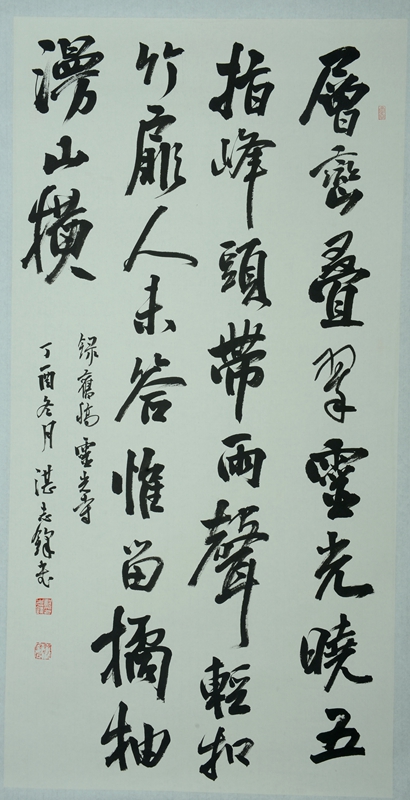 層巒疊翠靈光曉五
指峰頭帶雨聲輕扣
竹扉人未答惟留橘柚
漫山橫
錄舊稿靈光寺
丁酉冬月湛志鋒書